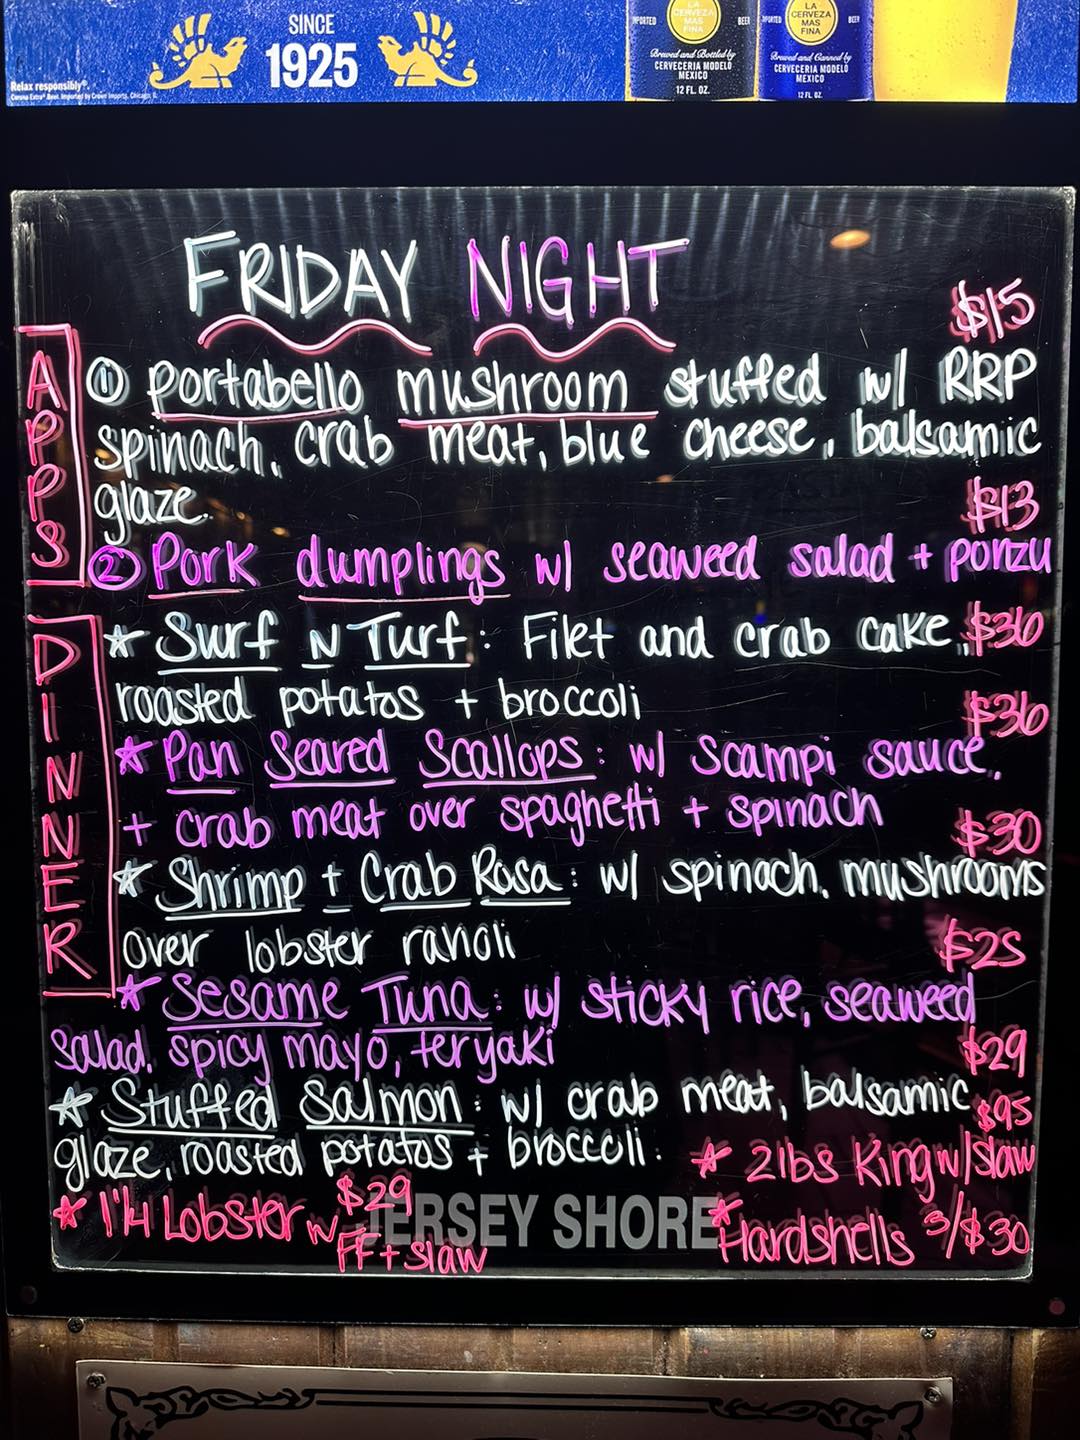 SINCE
1925
Relax responsibly®.
LA
CERVEZA
MAS
FINA
IMPORTED BEER
Brewed and Bottled by
CERVECERIA MODELO
MEXICO
12 FL. OZ.
LA
CERVEZA
MAS
FINA
IMPORTED BEER
Brewed and Canned by
CERVECERIA MODELO
MEXICO
12 FL. OZ.
FRIDAY NIGHT
$15
APPS
① portabello mushroom stuffed w/ RRP
spinach, crab meat, blue cheese, balsamic
glaze.
$13
② Pork dumplings w/ seaweed salad + ponzu
DINNER
* Surf N Turf: Filet and crab cake, $36
roasted potatos + broccoli
$36
* Pan Seared Scallops: w/ Scampi sauce,
+ crab meat over spaghetti + spinach
$30
* Shrimp + Crab Rosa: w/ spinach, mushrooms
over lobster ravioli
$25
* Sesame Tuna: w/ sticky rice, seaweed
salad, spicy mayo, teryaki
$29
* Stuffed Salmon: w/ crab meat, balsamic
glaze, roasted potatos + broccoli.
$95
* 2lbs King w/slaw
* 1¼ Lobster w/ FF + slaw $29
* Hardshells 3/$30
JERSEY SHORE